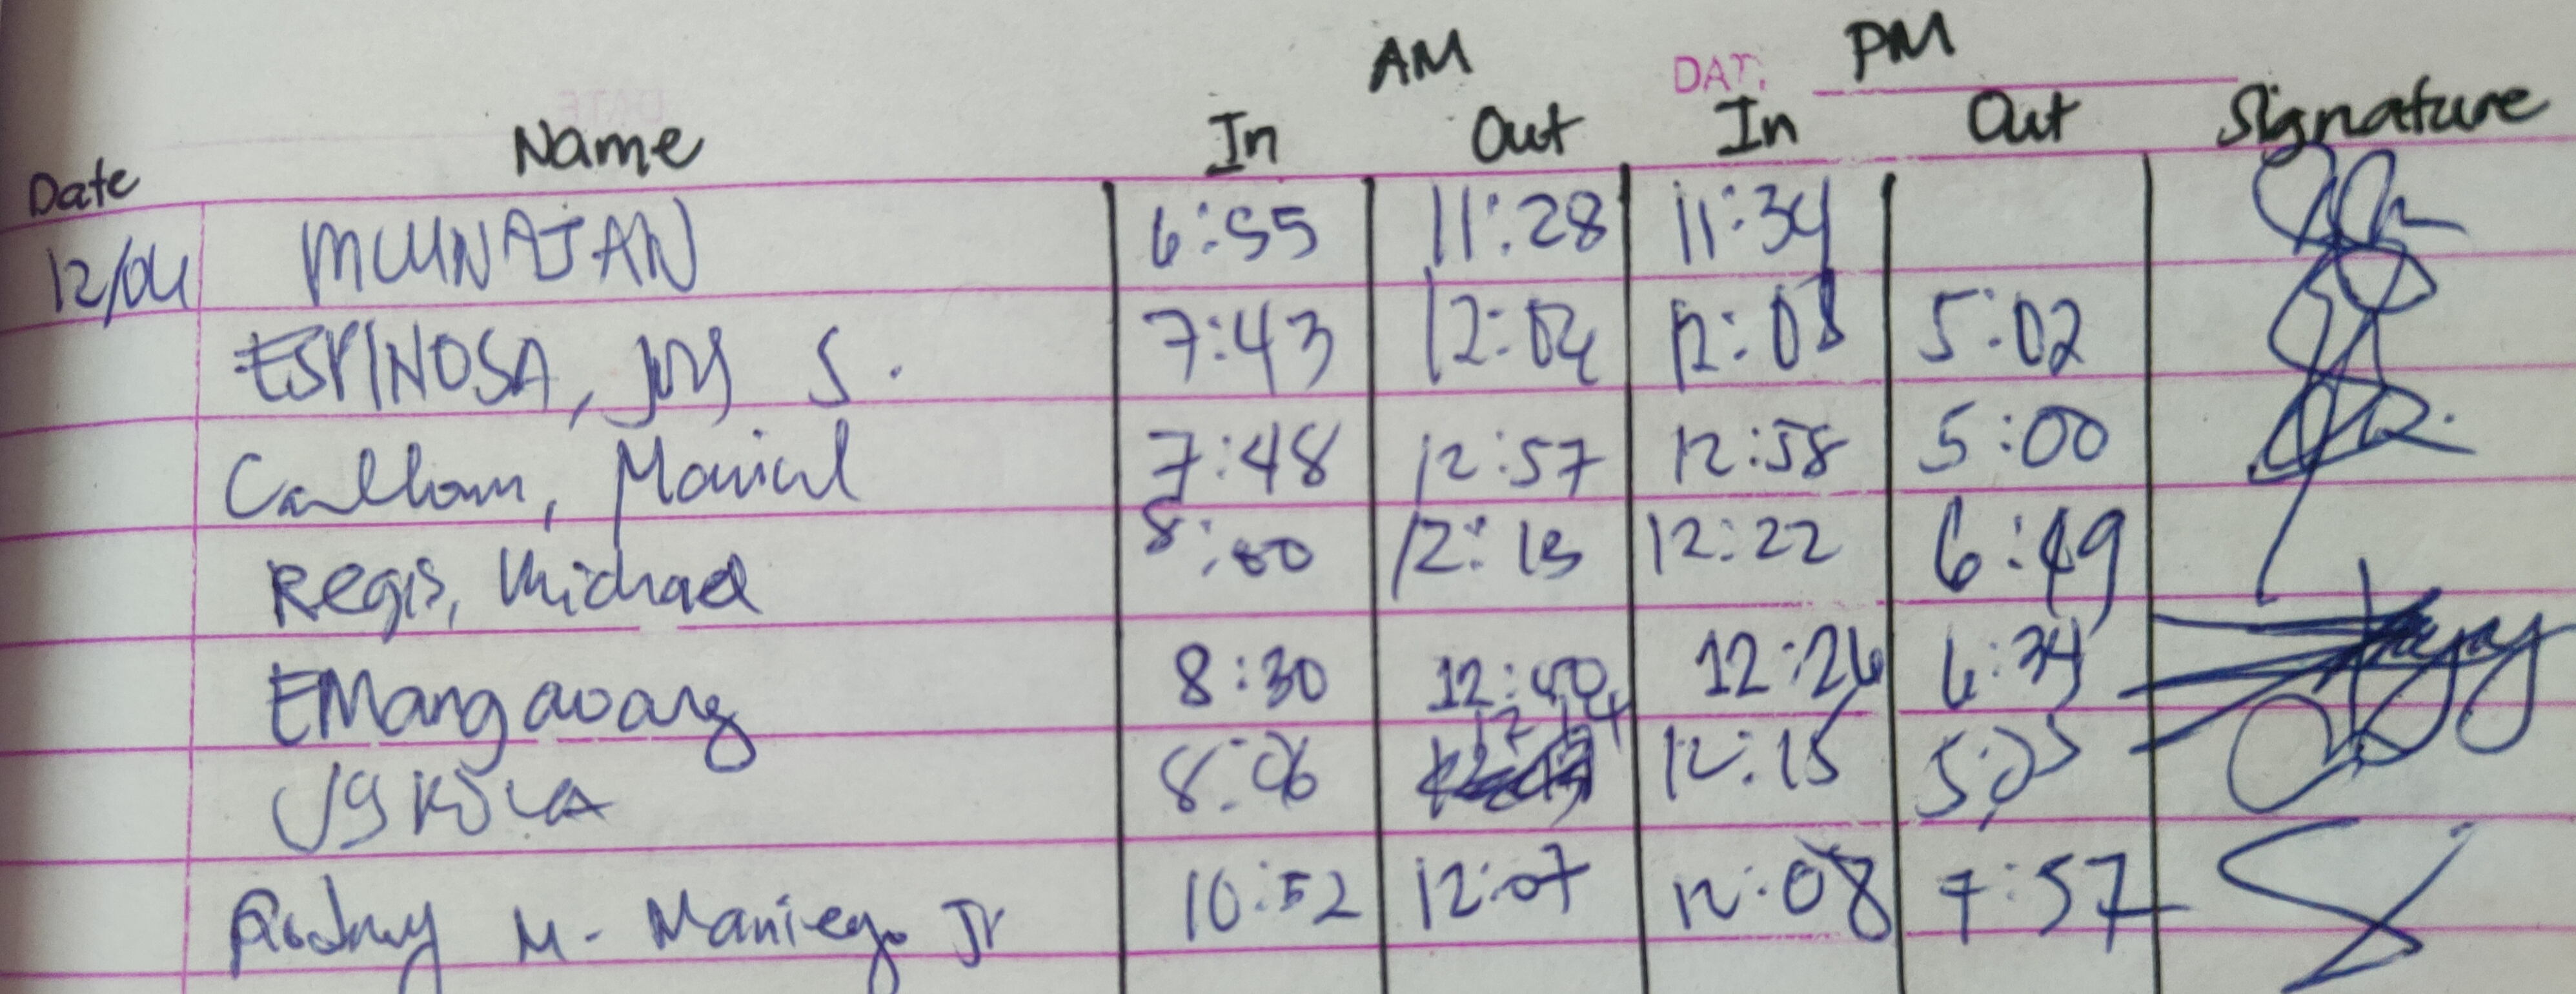 AM PM
DATE
Date Name In Out In Out Signature
12/04 MUNAJAN 6:55 11:28 11:34
ESPINOSA, JOY S. 7:43 12:02 12:03 5:02
7:48 12:57 12:58 5:00
Regis, Michael 8:00 12:13 12:22 6:49
EMangaoang 8:30 12:26 6:34
8:06 12:14 12:15
Rodney M. Maniego Jr 10:52 12:07 12:08 7:57